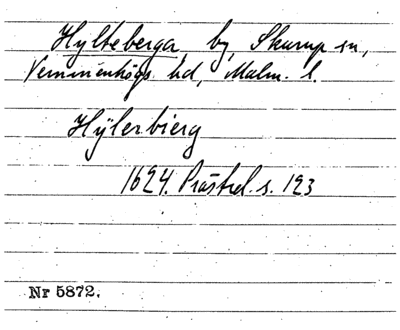 Hylteberga, by, Skurup sn,
Vemmenhögs hd, Malm. l.
Hÿlerbierg
1624. Prästrel. s. 123
Nr 5872.